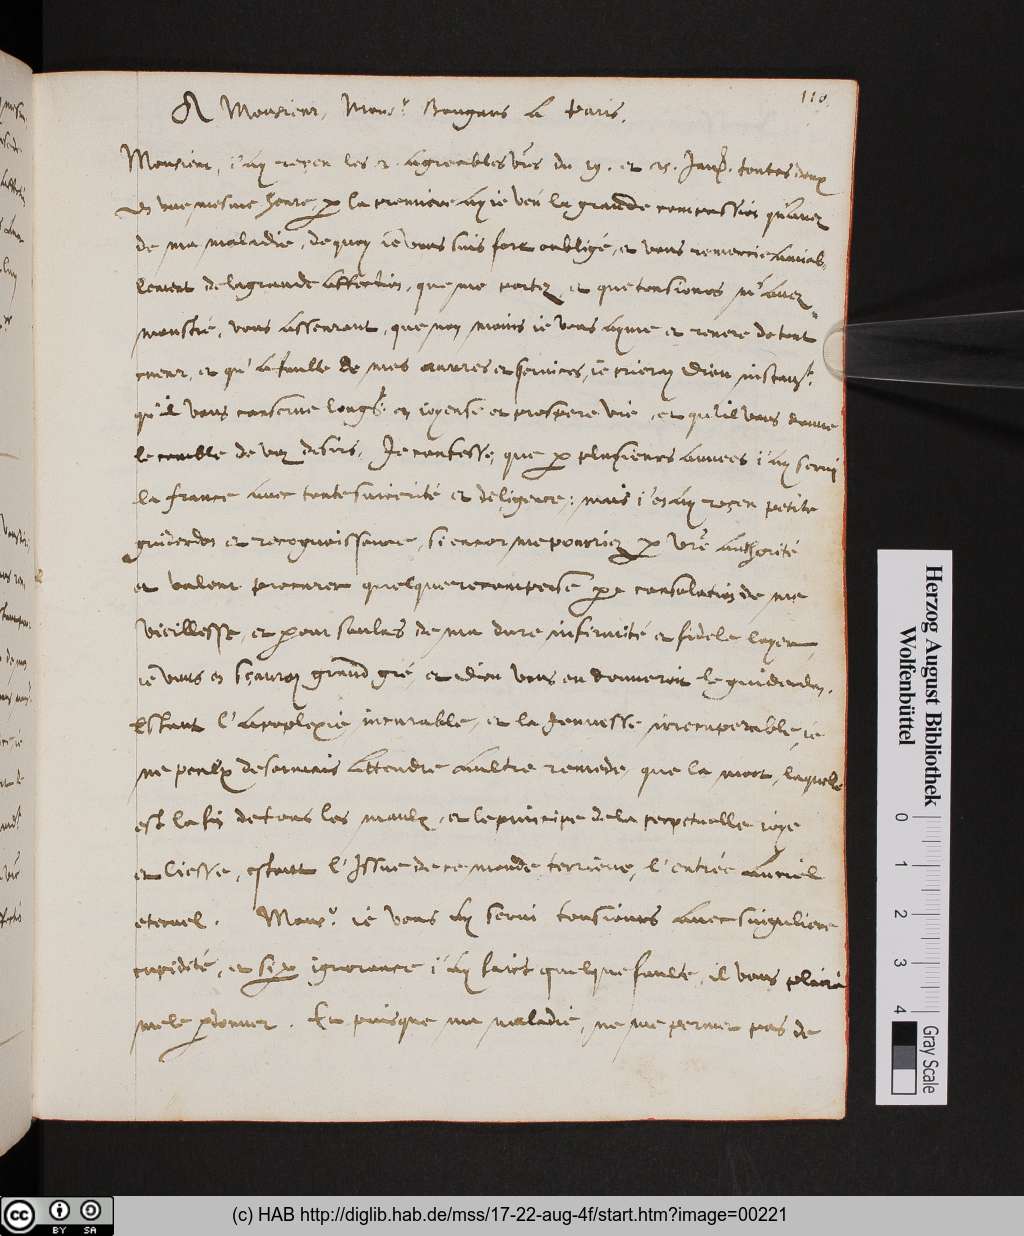 110.
A Monsieur, Monsr. Bongars A Paris.
Monsieur, i'ay reçeu les 2. agreables vres du 19. et 25. Janvr. toutes deux
en une mesme heure, p la premiere ay ie veu la grande compassion qu'avez
de ma maladie, de quoy ie vous suis fort oubligé, et vous remercie amiab-
lement de la grande affection, que me portez, et que tousiours m'avez
monstré, vous asseurant, que non moins ie vous ayme et revere de tout
cueur, et qu'a faulte de mes oeuvres et services, ie prieray Dieu instamt.
qu'il vous conserve longt. en ioyeuse et prospere vie, et qu'il vous donne
le comble de voz desirs. Je confesse, que p plusieurs années i'ay servi
la france avec toute sincerité et deligence: mais i'en ay reçeu petite
guiderdon et recognoissance, si encor me pourriez p vre authorité
et valeur procurer quelque recompense po consolation de me
vieillesse, et pour soulas de ma dure infirmité et fidele loyer,
ie vous en sçauroy grand gré, et dieu vous en donneroit le guiderdon.
Estant l'apoplexie incurable, et la Jeunesse irrecuperable, ie
ne peulx desormais attendre aultre remede, que la mort, laquelle
est la fin de tous les maulx, et le principe de la perpetuelle ioye
et liesse, estant l'Issue de ce monde terriene, l'entrée au ciel
eternel. Monsr. ie vous ay servi tousiours avec singuliere
cupidité, et si p ignorance i'ay faict quelque faulte, il vous plaira
me le pdonner. Et puisque ma maladie, ne me permet pas de
Herzog August Bibliothek
Wolfenbüttel
0 1 2 3 4
Gray Scale
BY SA
(c) HAB http://diglib.hab.de/mss/17-22-aug-4f/start.htm?image=00221